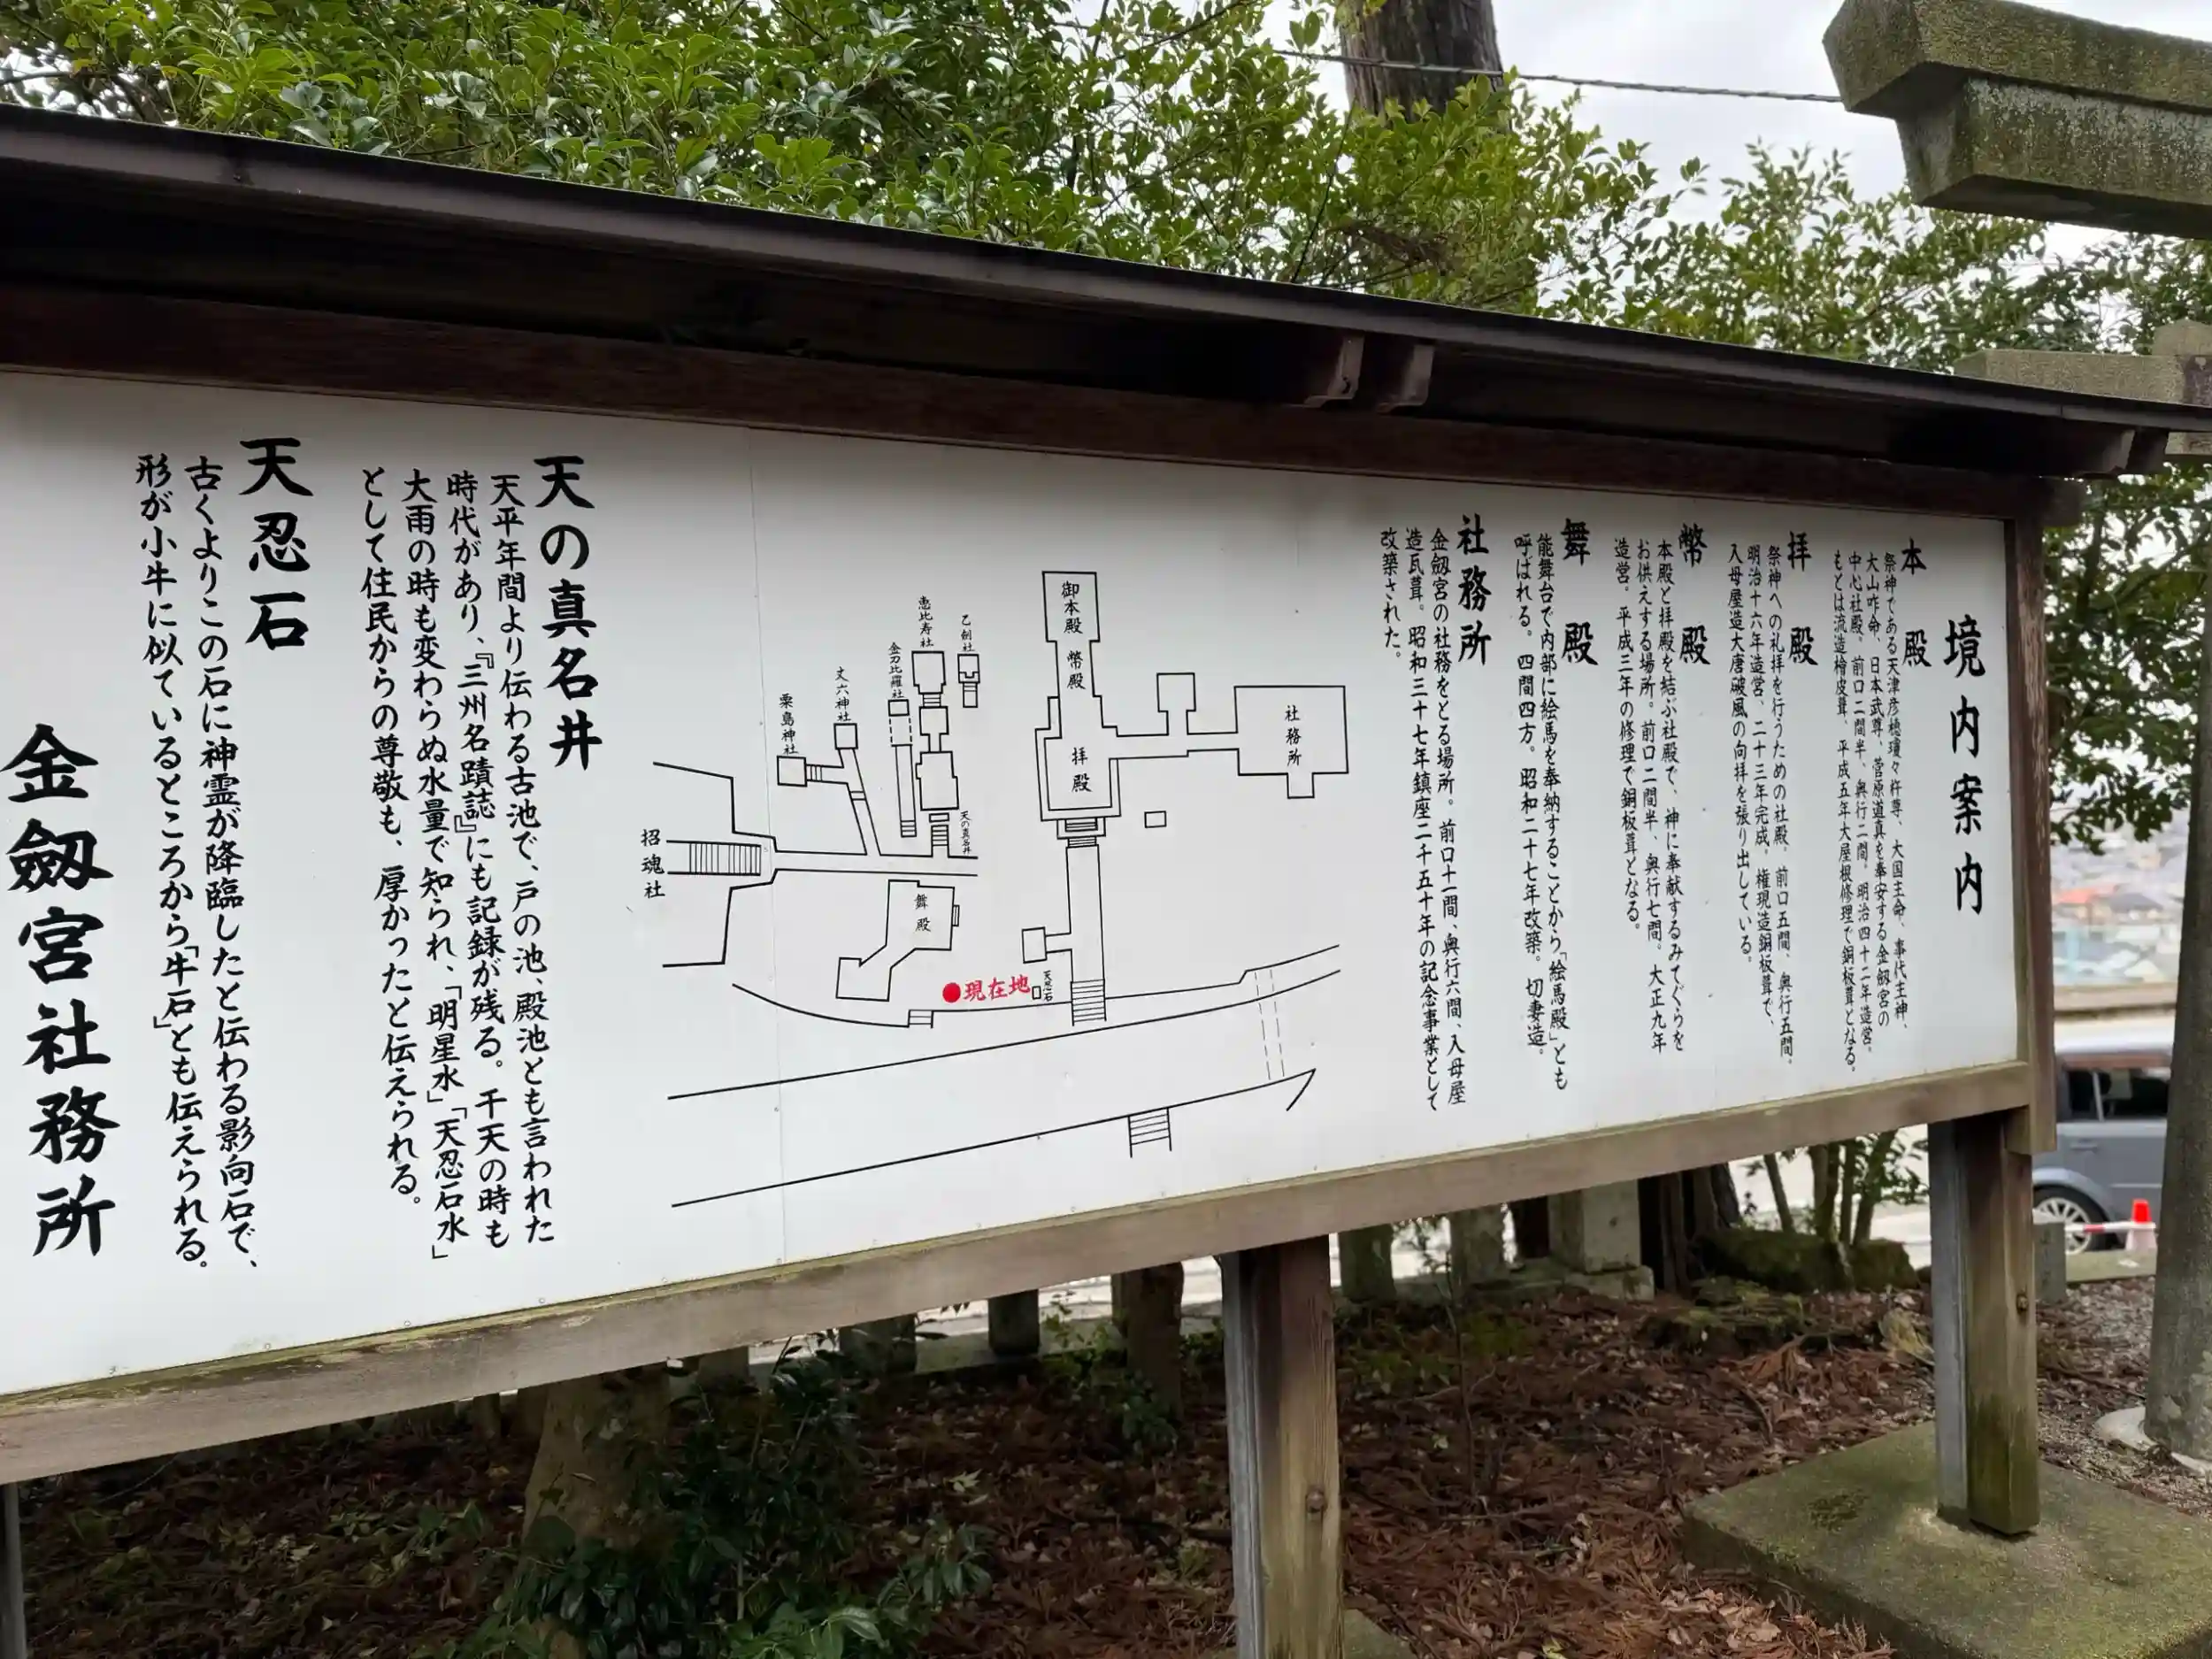 境内案内
本殿
祭神である天津彦穂瓊々杵尊、大国主命、事代主神、
大山咋命、日本武尊、菅原道真を奉安する金劔宮の
中心社殿。前口二間半、奥行二間。明治四十二年造営。
もとは流造檜皮葺、平成五年大屋根修理で銅板葺となる。
拝殿
祭神への礼拝を行うための社殿。前口五間、奥行五間。
明治十六年造営、二十三年完成。権現造銅板葺で、
入母屋造大唐破風の向拝を張り出している。
幣殿
本殿と拝殿を結ぶ社殿で、神に奉献するみてぐらを
お供えする場所。前口二間半、奥行七間。大正九年
造営。平成三年の修理で銅板葺となる。
舞殿
能舞台で内部に絵馬を奉納することから「絵馬殿」とも
呼ばれる。四間四方。昭和二十七年改築。切妻造。
社務所
金劔宮の社務をとる場所。前口十一間、奥行六間、入母屋
造瓦葺。昭和三十七年鎮座二千五十年の記念事業として
改築された。
御本殿
幣殿
拝殿
社務所
乙劔社
恵比寿社
金刀比羅社
丈六神社
粟島神社
天の真名井
招魂社
舞殿
現在地
天忍石
天の真名井
天平年間より伝わる古池で、戸の池、殿池とも言われた
時代があり、『三州名蹟誌』にも記録が残る。干天の時も
大雨の時も変わらぬ水量で知られ、「明星水」「天忍石水」
として住民からの尊敬も、厚かったと伝えられる。
天忍石
古くよりこの石に神霊が降臨したと伝わる影向石で、
形が小牛に似ているところから「牛石」とも伝えられる。
金劔宮社務所